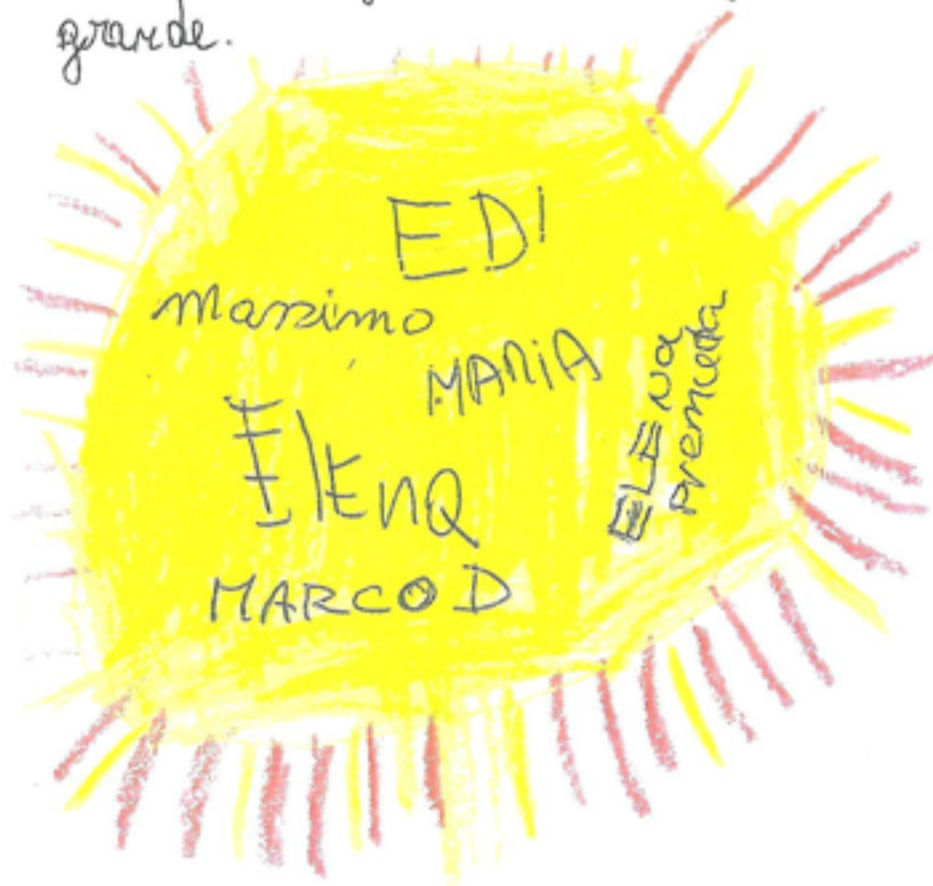 grande.
EDI
Massimo
MARIA
ElEnа
ELENA
MARCO D